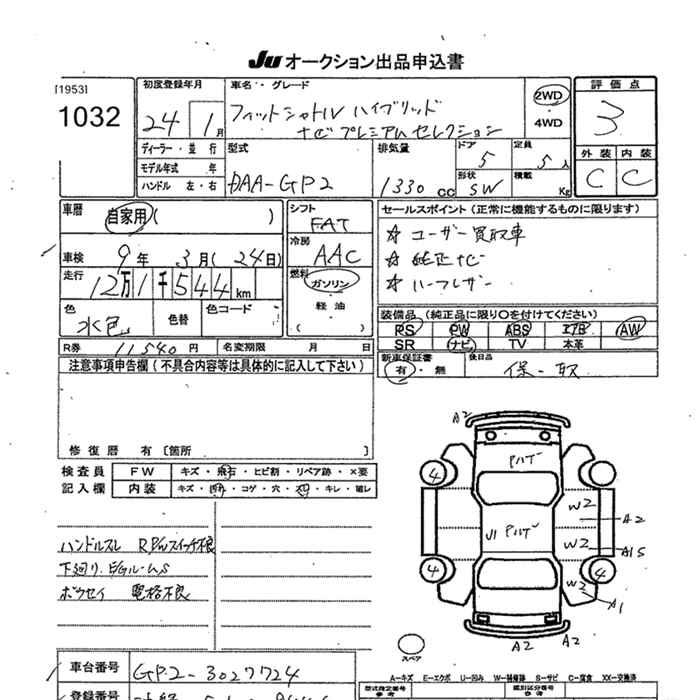 JU オークション出品申込書
[1953]
1032
初度登録年月
24 1月
車名・グレード
フィットシャトル ハイブリッド
ナビプレミアムセレクション
2WD
・4WD
評価点
3
外装 内装
C C
ディーラー・並行
モデル年式 年
ハンドル 左・右
型式
DAA-GP2
排気量
1330 cc
ドア
5
定員
5人
形状
SW
積載
Kg
車歴
自家用 ( )
車検 9年 3月 (24日)
走行 12万1千544km
色
水色
色替
色コード
シフト
FAT
冷房
AAC
燃料
ガソリン
・
軽油
( )
セールスポイント (正常に機能するものに限ります)
☆ ユーザー買取車
☆ 純正ナビ
☆ ハーフレザー
装備品 (純正品に限り○を付けてください)
PS PW ABS エアB AW
SR ナビ TV 本革
R券 11540円
名変期限 月 日
新車保証書
有・無
後日品
保-取
注意事項申告欄 (不具合内容等は具体的に記入して下さい)
修復歴 有 [箇所 ]
検査員
記入欄
FW キズ・飛石・ヒビ割・リペア跡・×要
内装
ハンドルスレ R P/Wスイッチ不良
下廻り
電格不良
A2
Pハゲ
4
W2
A2
U1 Pハゲ
W2
A15
4
4
W2
A1
A2
A2
スペア
A=キズ E=エクボ U=凹み W=補修跡 S=サビ C=腐食 XX=交換済
車台番号
GP2-3027724
型式指定番号
参考
類別区分番号
参考
登録番号